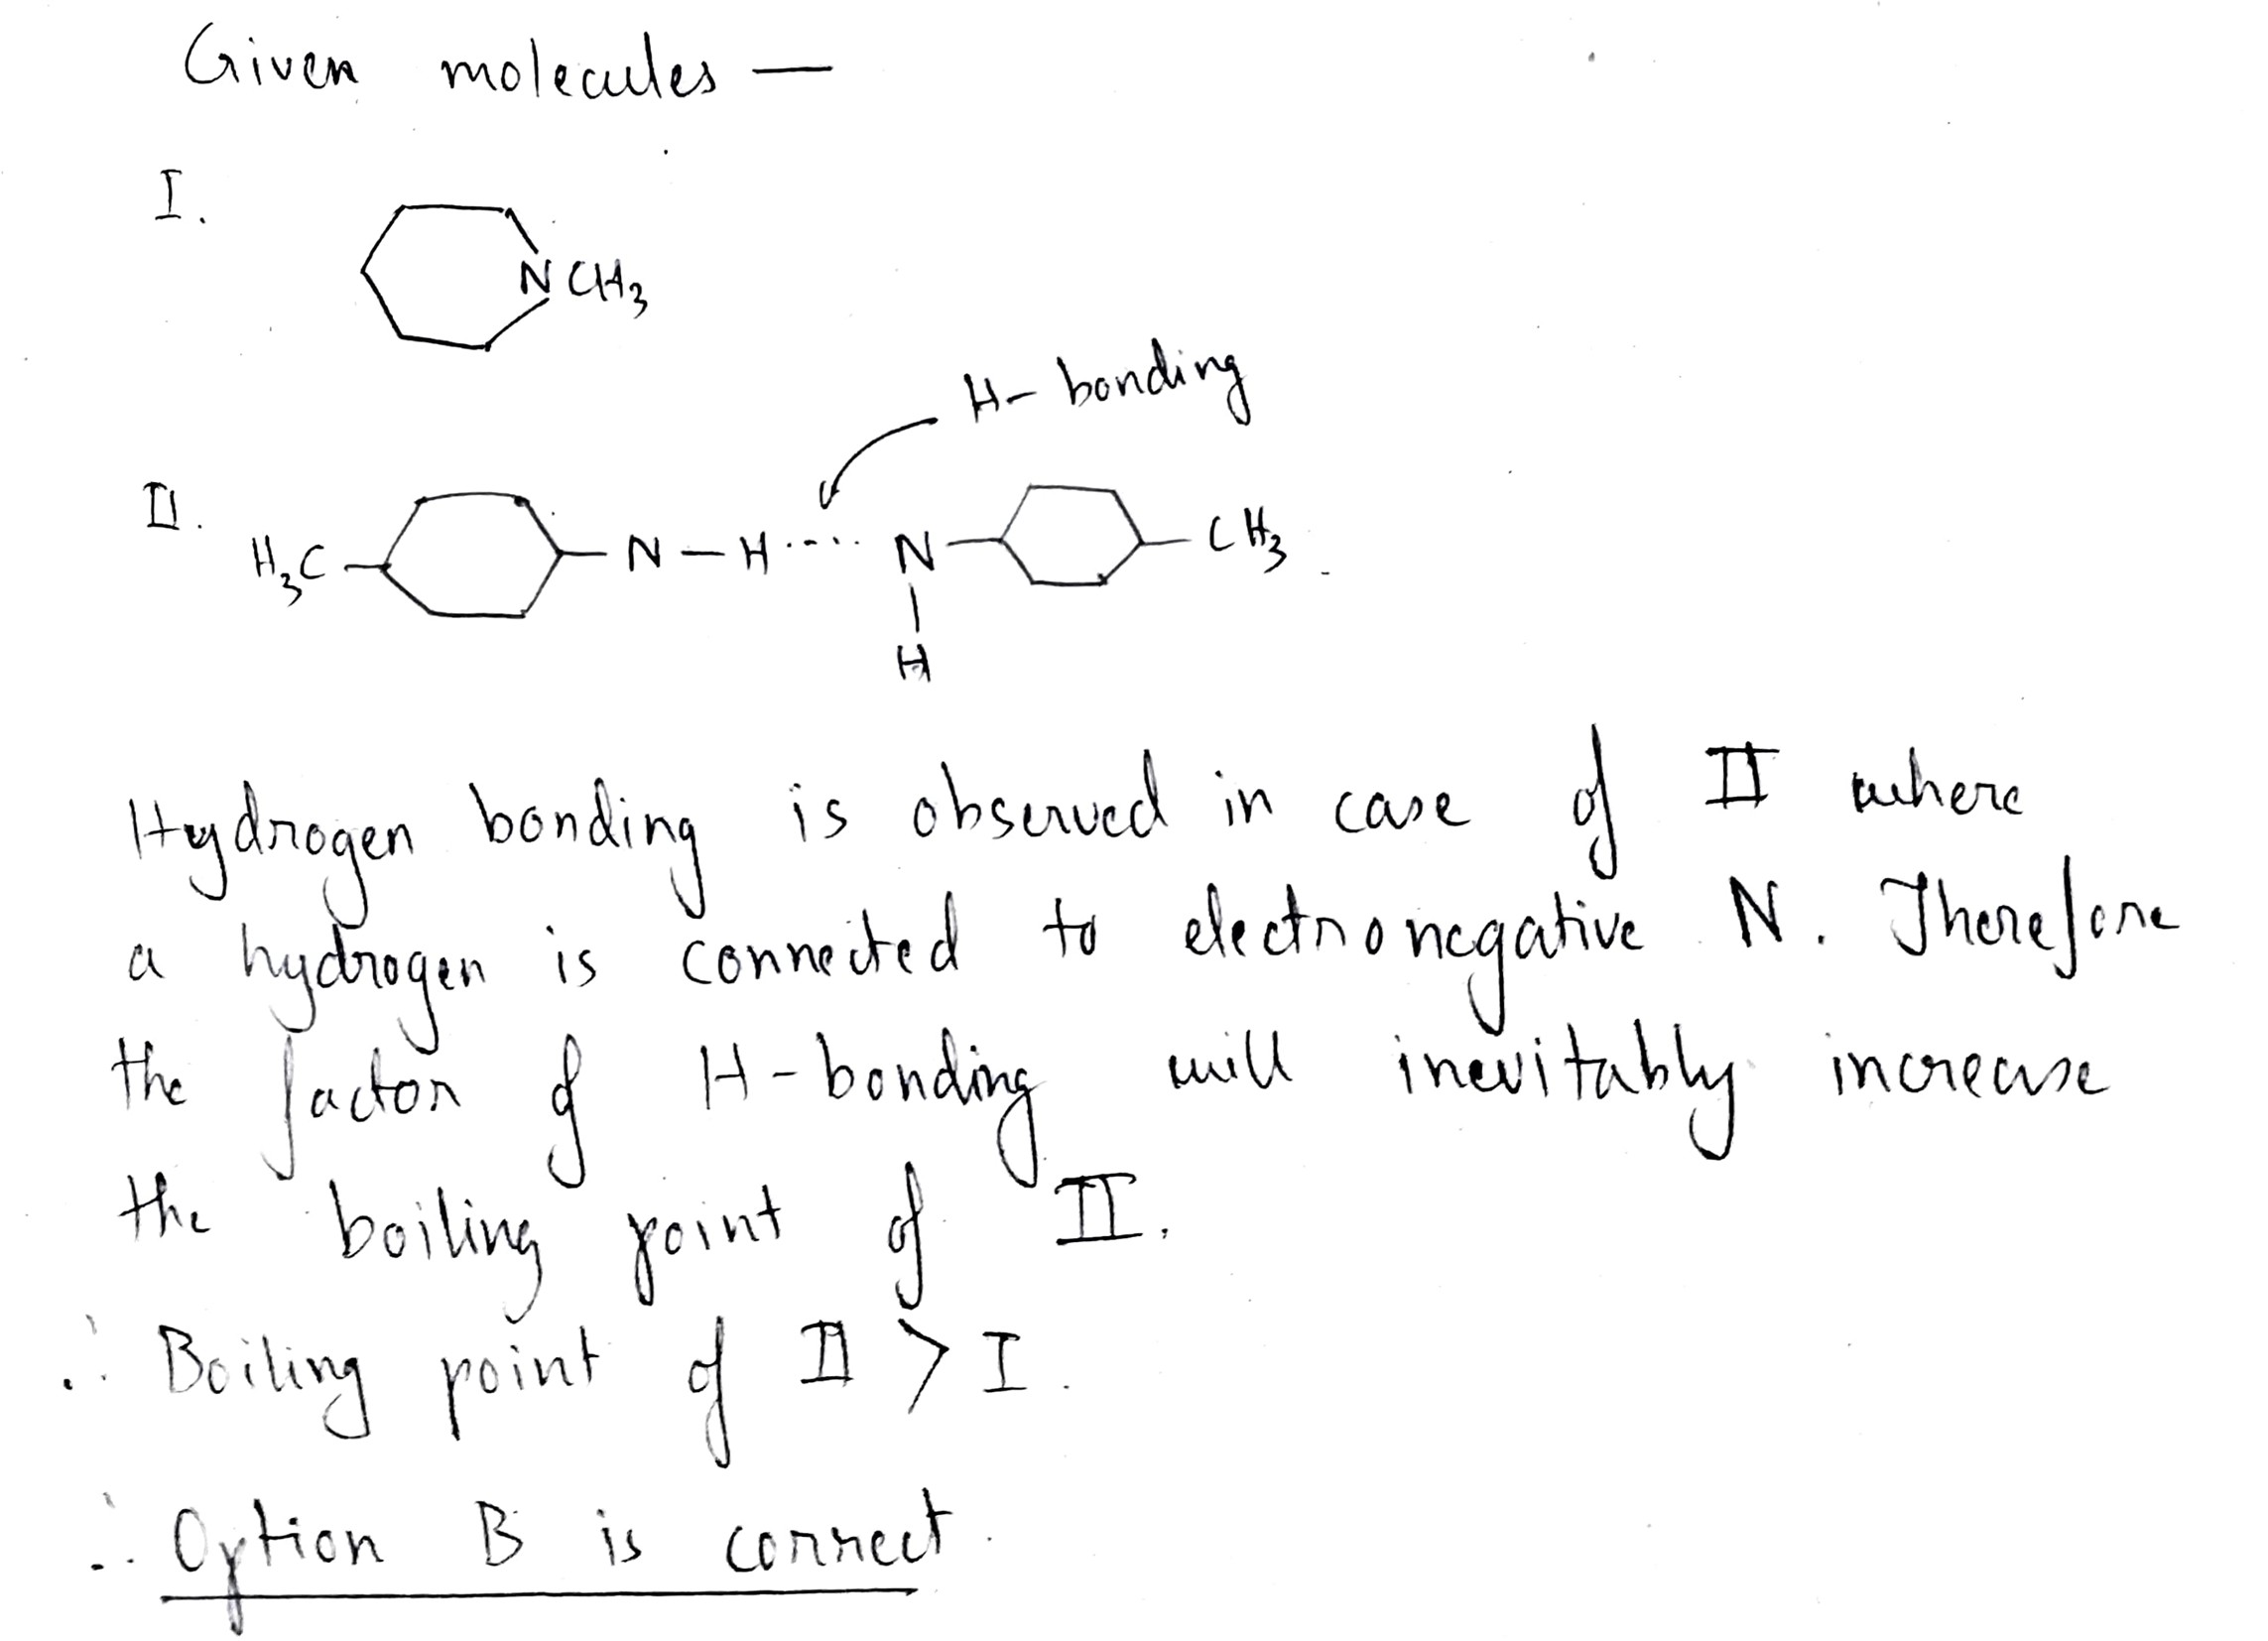 Given molecules —
I.
N CH3
H- bonding
II.
H3C N - H ..... N CH3
H
Hydrogen bonding is observed in case of II where
a hydrogen is connected to electronegative N. Therefore
the factor of H-bonding will inevitably increase
the boiling point of II.
∴ Boiling point of II > I.
∴ Option B is correct.